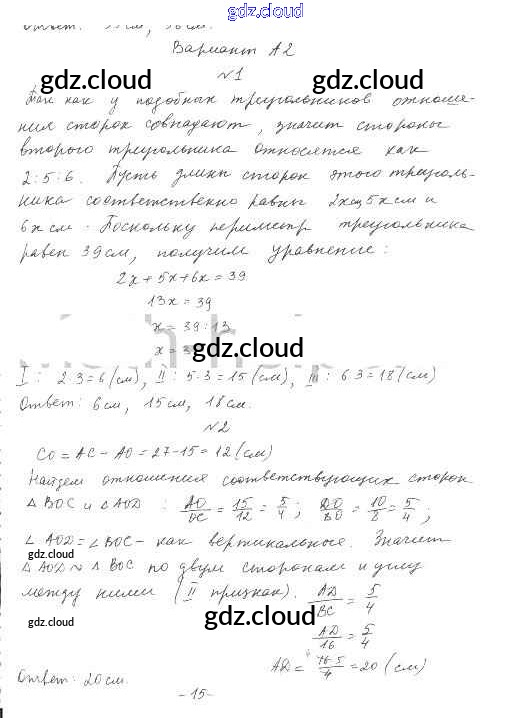 gdz.cloud
Ответ: см, см.
Вариант А2
№1
gdz.cloud gdz.cloud
Так как у подобных треугольников отноше-
ния сторон совпадают, значит стороны
второго треугольника относятся как
2:5:6. Пусть длины сторон этого треуголь-
ника соответственно равны 2x см 5x см и
6x см. Поскольку периметр треугольника
равен 39 см, получим уравнение:
2x + 5x + 6x = 39
13x = 39
x = 39 : 13
x = 3
gdz.cloud
I: 2·3=6 (см), II: 5·3=15 (см), III: 6·3=18 (см)
Ответ: 6 см, 15 см, 18 см.
№2
CO = AC - AO = 27-15 = 12 (см)
Найдем отношения соответствующих сторон
gdz.cloud gdz.cloud
△ BOC и △ AOD : AO/OC = 15/12 = 5/4 ; DO/BO = 10/8 = 5/4 ;
∠ AOD = ∠ BOC - как вертикальные. Значит
gdz.cloud
△ AOD ~ △ BOC по двум сторонам и углу
между ними (II признак). AD/BC = 5/4
gdz.cloud gdz.cloud
AD/16 = 5/4
AD = 16·5/4 = 20 (см)
Ответ: 20 см.
- 15 -